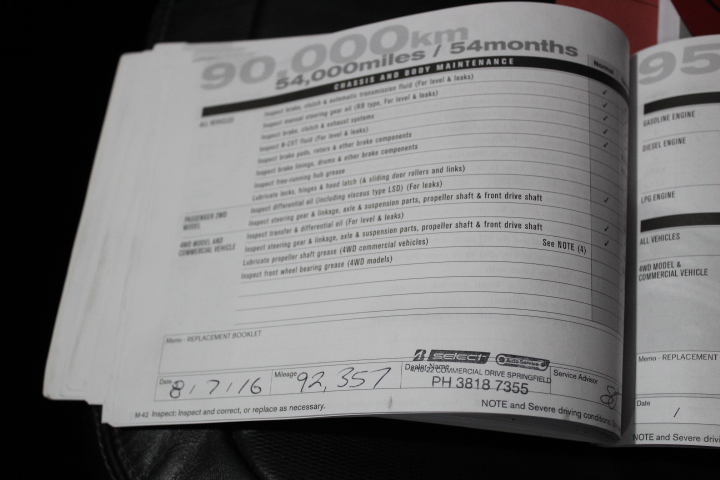 90.000km
54,000miles / 54months
CHASSIS AND BODY MAINTENANCE
Normal
ALL VEHICLES
Inspect brake, clutch & automatic transmission fluid (For level & leaks)
Inspect manual steering gear oil (RB type, For level & leaks)
Inspect brake, clutch & exhaust systems
Inspect N-CVT fluid (For level & leaks)
Inspect brake pads, rotors & other brake components
Inspect brake linings, drums & other brake components
Inspect free-running hub grease
Lubricate locks, hinges & hood latch (& sliding door rollers and links)
PASSENGER 2WD MODEL
Inspect differential oil (including viscous type LSD) (For leaks)
Inspect steering gear & linkage, axle & suspension parts, propeller shaft & front drive shaft
4WD MODEL AND COMMERCIAL VEHICLE
Inspect transfer & differential oil (For level & leaks)
Inspect steering gear & linkage, axle & suspension parts, propeller shaft & front drive shaft
Lubricate propeller shaft grease (4WD commercial vehicles)
Inspect front wheel bearing grease (4WD models) See NOTE (4)
Memo - REPLACEMENT BOOKLET
SELECT Auto Service
Date 8/7/16 Mileage 92,357 Dealer Name Service Advisor
COMMERCIAL DRIVE SPRINGFIELD
PH 3818 7355
M-42 Inspect: Inspect and correct, or replace as necessary. NOTE and Severe driving conditions
95
GASOLINE ENGINE
DIESEL ENGINE
LPG ENGINE
ALL VEHICLES
4WD MODEL &
COMMERCIAL VEHICLE
Memo - REPLACEMENT
Date
/
NOTE and Severe drivi